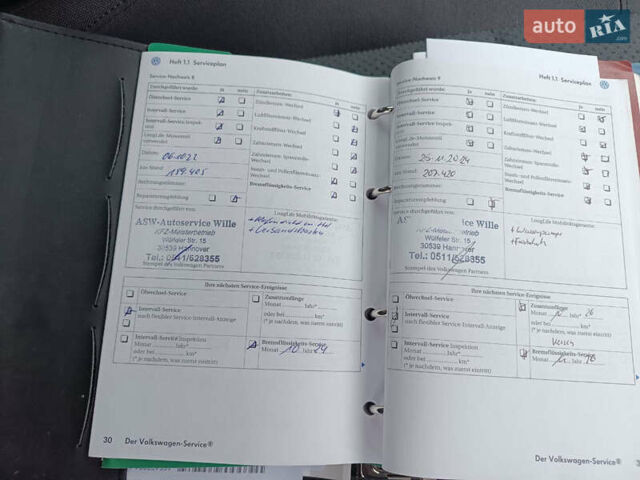 auto RIA
.com
Heft 1.1 Serviceplan
Service-Nachweis 8
Durchgeführt wurde: ja nein
Ölwechsel-Service
Intervall-Service
Intervall-Service/Inspek-
tion
LongLife-Motorenöl
verwendet
Datum: 06.10.22
km-Stand: 189.405
Rechnungsnummer:
Reparaturempfehlung
Service durchgeführt von:
ASW-Autoservice Wille
KFZ-Meisterbetrieb
Wülfeler Str. 15
30539 Hannover
Tel.: 0511/628355
Stempel des Volkswagen Partners
Zusatzarbeiten: ja nein
Zündkerzen-Wechsel
Luftfiltereinsatz-Wechsel
Kraftstofffilter-Wechsel
Zahnriemen-Wechsel
Zahnriemen Spannrolle-
Wechsel
Staub- und Pollenfiltereinsatz-
Wechsel
Bremsflüssigkeits-Service
LongLife Mobilitätsgarantie:
Ihre nächsten Service-Ereignisse
Ölwechsel-Service
Intervall-Service
nach flexibler Service-Intervall-Anzeige
Intervall-Service Inspektion
Monat Jahr*
oder bei km*
(* je nachdem, was zuerst eintritt)
Zusatzumfänge
Monat Jahr*
oder bei km*
(* je nachdem, was zuerst eintritt)
Bremsflüssigkeits-Service
Monat 10 Jahr 24
30 Der Volkswagen-Service®
Heft 1.1 Serviceplan
Service-Nachweis 9
Durchgeführt wurde: ja nein
Ölwechsel-Service
Intervall-Service
Intervall-Service/Inspek-
tion
LongLife-Motorenöl
verwendet
Datum: 25.11.2024
km-Stand: 207.420
Rechnungsnummer:
Reparaturempfehlung
Service durchgeführt von:
AS icewille
KFZ-Meisterbetrieb
Wülfeler Str. 15
30539 Hannover
Tel.: 0511/628355
Stempel des Volkswagen Partners
Zusatzarbeiten: ja nein
Zündkerzen-Wechsel
Luftfiltereinsatz-Wechsel
Kraftstofffilter-Wechsel
Zahnriemen-Wechsel
Zahnriemen Spannrolle-
Wechsel
Staub- und Pollenfiltereinsatz-
Wechsel
Bremsflüssigkeits-Service
LongLife Mobilitätsgarantie:
Ihre nächsten Service-Ereignisse
Ölwechsel-Service
Intervall-Service
nach flexibler Service-Intervall-Anzeige
Intervall-Service Inspektion
Monat Jahr*
oder bei km*
(* je nachdem, was zuerst eintritt)
Zusatzumfänge
Monat Jahr* 26
oder bei km*
(* je nachdem, was zuerst eintritt)
Bremsflüssigkeits-Service
Monat Jahr
Der Volkswagen-Service®